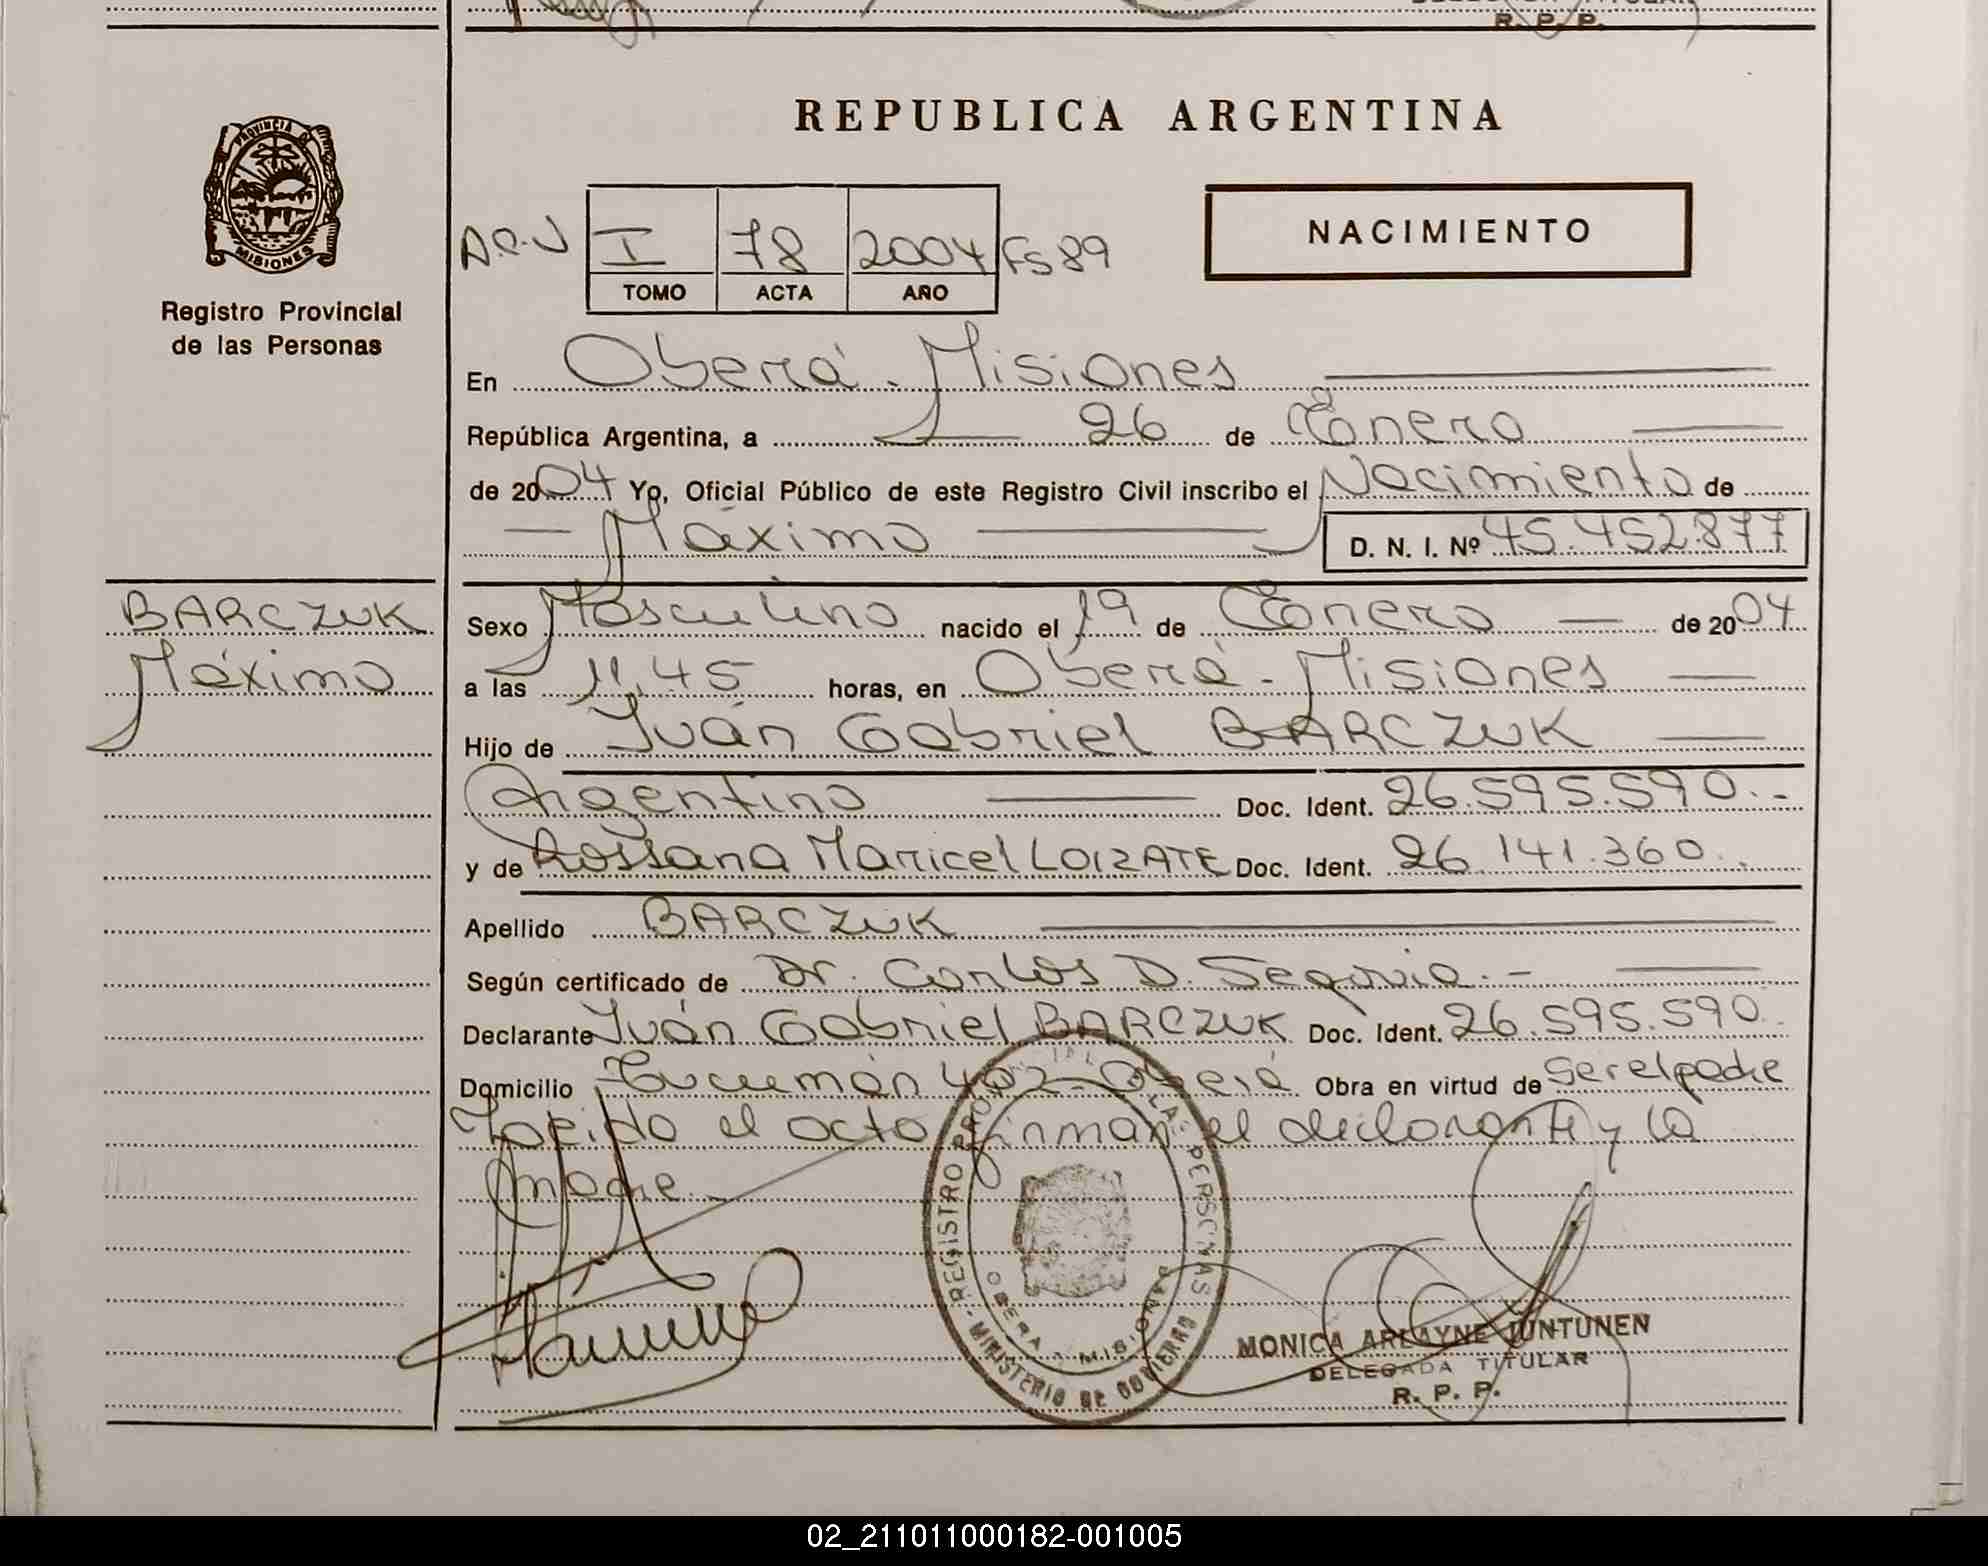 R. P. P.
REPUBLICA ARGENTINA
PROVINCIA DE
MISIONES
Registro Provincial
de las Personas
NACIMIENTO
I 78 2004 Fs 89
TOMO ACTA AÑO
En Oberá - Misiones
República Argentina, a 26 de Enero
de 2004 Yo, Oficial Público de este Registro Civil inscribo el Nacimiento de
Máximo D. N. I. Nº 45.452.877
BARCZUK
Máximo
Sexo Masculino nacido el 19 de Enero de 2004
a las 11,45 horas, en Oberá - Misiones
Hijo de Iván Gabriel BARCZUK
Argentino Doc. Ident. 26.595.590.-
y de Rossana Maricel LOIZATE Doc. Ident. 26.141.360.
Apellido BARCZUK
Según certificado de Dr. Carlos D. Segovia.-
Declarante Iván Gabriel BARCZUK Doc. Ident. 26.595.590
Domicilio Tucumán 402 - Oberá Obra en virtud de ser el padre
el acto firman el declarante y la
madre.
REGISTRO LAS PERSONAS
OBERA - MISIONES
MINISTERIO DE GOBIERNO
MONICA ARLAYNE JUNTUNEN
DELEGADA TITULAR
R. P. P.
02_211011000182-001005